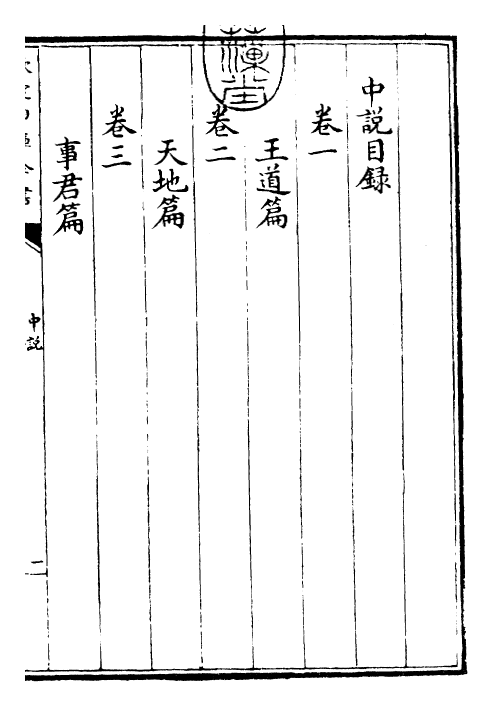 中說目録
卷一
王道篇
卷二
天地篇
卷三
事君篇
中說
二